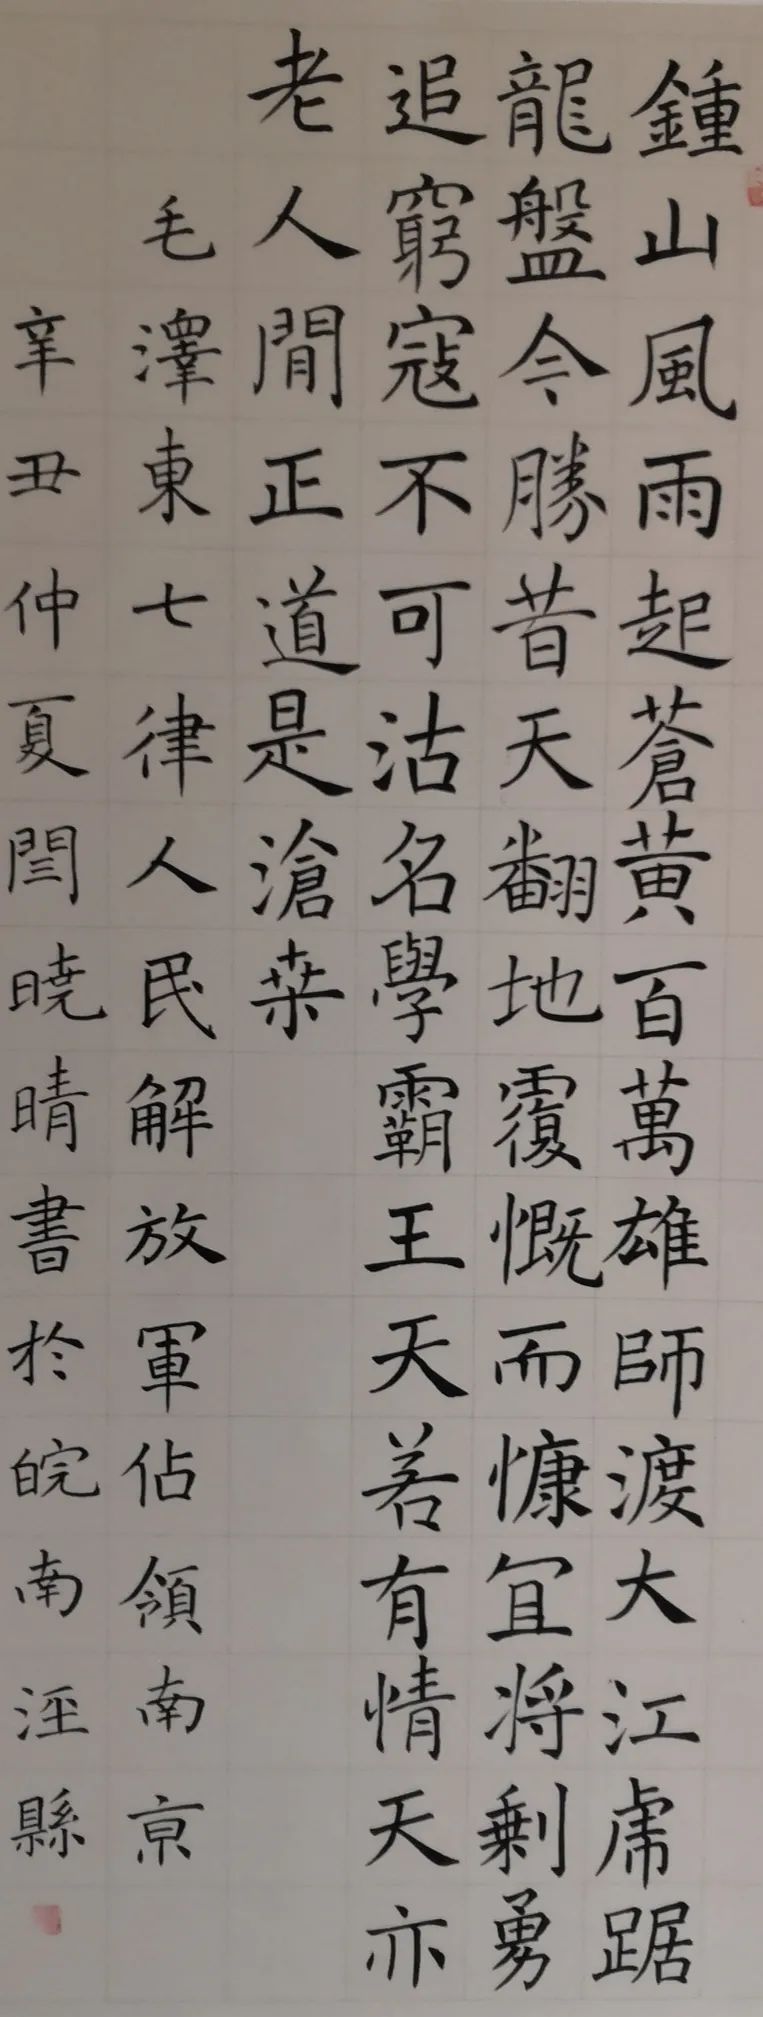 鍾山風雨起蒼黃百萬雄師渡大江虎踞
龍盤今勝昔天翻地覆慨而慷宜將剩勇
追窮寇不可沽名學霸王天若有情天亦
老人間正道是滄桑
毛澤東七律人民解放軍佔領南京
辛丑仲夏閆曉晴書於皖南涇縣